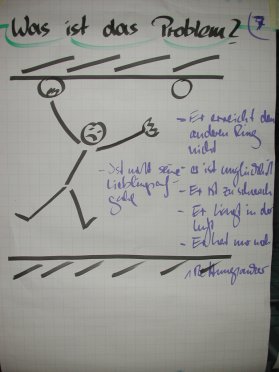 Was ist das Problem?
7
- Er erreicht den
anderen Ring
nicht
- Ist nicht seine
Lieblingsauf-
gabe
- er ist unglücklich
- Er ist zu schwach
- Er hängt in der
Luft
- Er hat nur